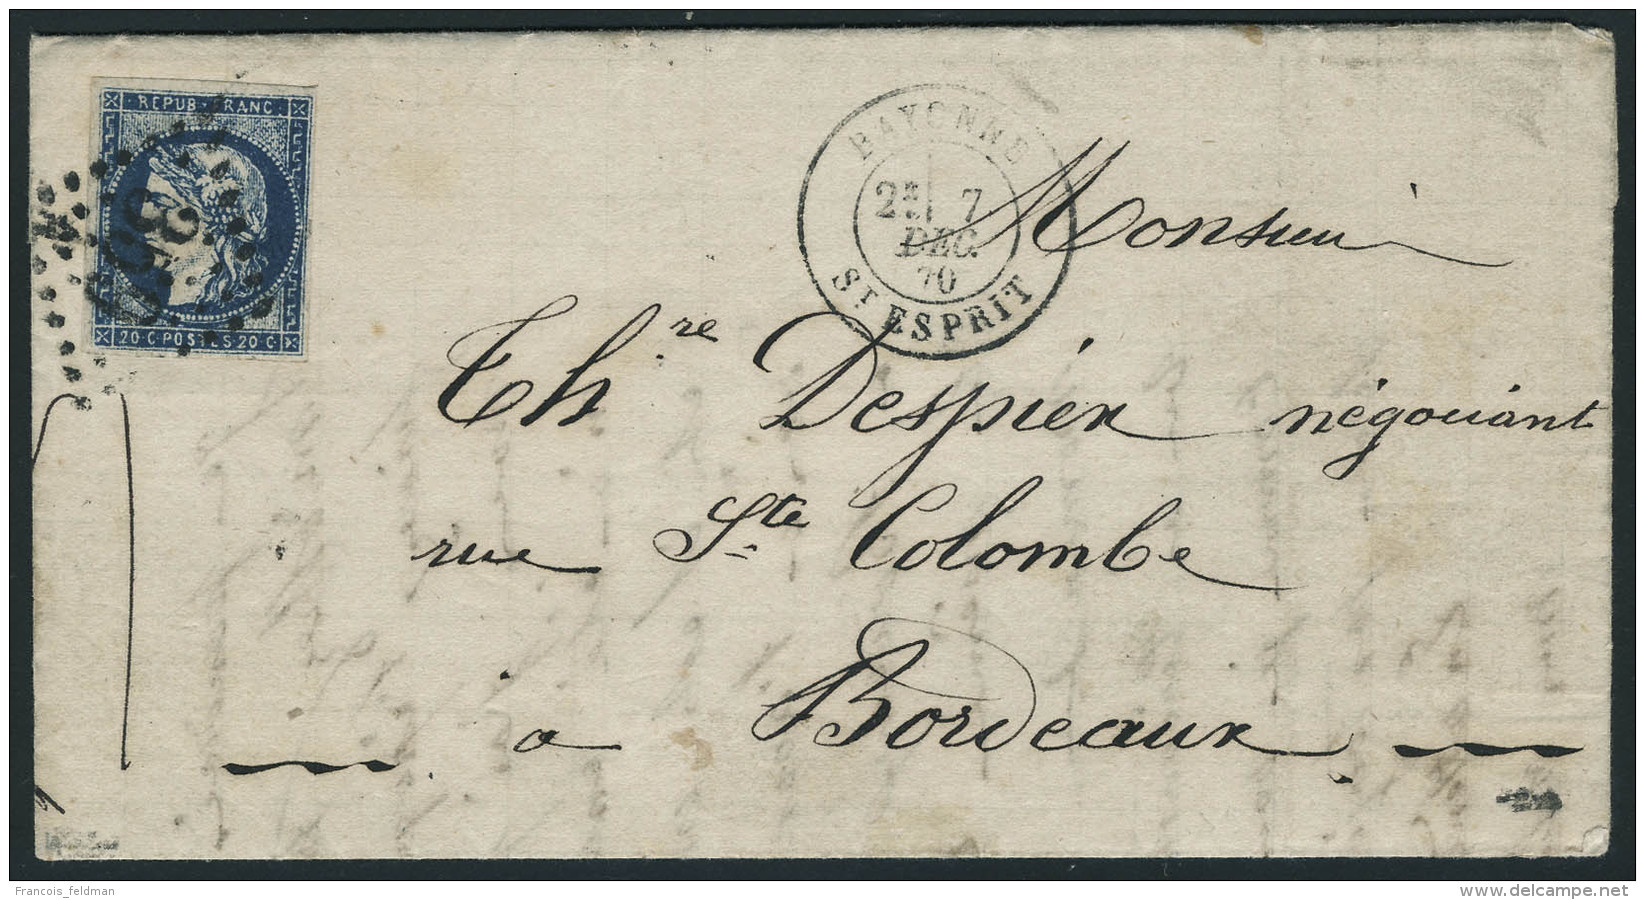 REPUB FRANC
20·C·POSTES 20·C
BAYONNE
2E 7
DEC.
70
ST ESPRIT
Monsieur
Thre Despier négociant
rue Ste Colombe
a Bordeaux
Francois_feldman
www.delcampe.net